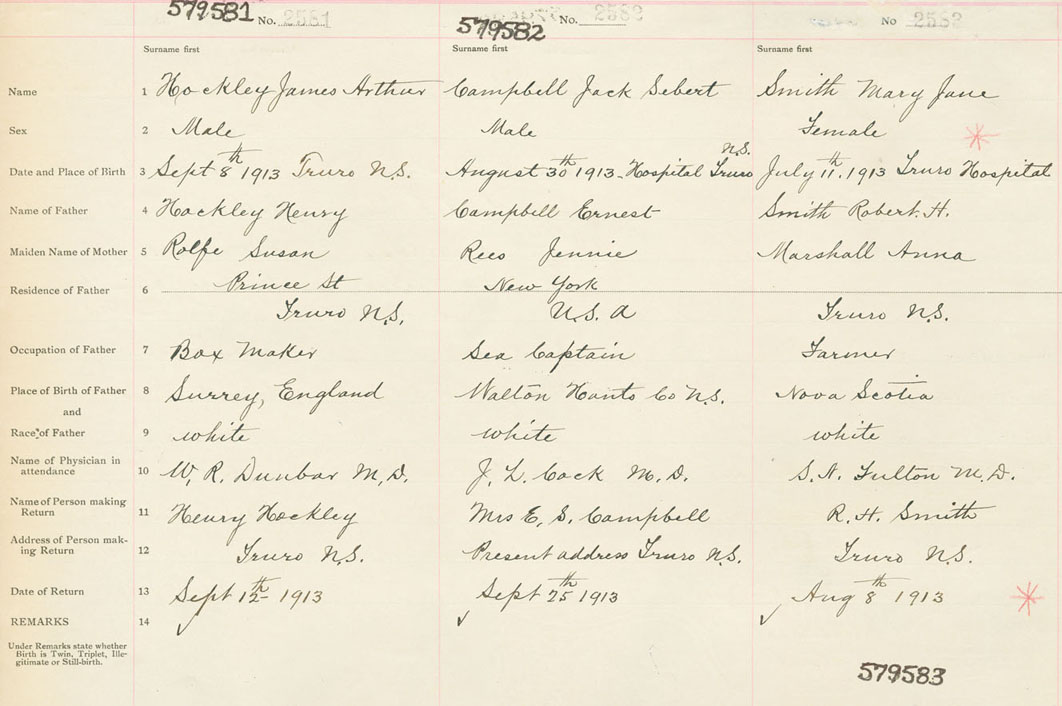 579581 No. 2581 579582 No. 2582 No 2583
Surname first Surname first Surname first
Name 1 Hockley James Arthur Campbell Jack Sebert Smith Mary Jane
Sex 2 Male Male Female
N.S.
Date and Place of Birth 3 Sept 8th 1913 Truro N.S. August 30th 1913 - Hospital Truro July 11th. 1913 Truro Hospital
Name of Father 4 Hockley Henry Campbell Ernest Smith Robert. H.
Maiden Name of Mother 5 Rolfe Susan Rees Jennie Marshall Anna
Residence of Father 6 Prince St New York
Truro N.S. U.S. A Truro N.S.
Occupation of Father 7 Box Maker Sea Captain Farmer
Place of Birth of Father 8 Surrey, England Walton Hants Co N.S. Nova Scotia
and
Race of Father 9 white white white
Name of Physician in
attendance 10 W. R. Dunbar M.D. J. L. Cock M.D. S. N. Fulton M.D.
Name of Person making
Return 11 Henry Hockley Mrs E. S. Campbell R. H. Smith
Address of Person mak-
ing Return 12 Truro N.S. Present address Truro N.S. Truro N.S.
Date of Return 13 Sept 12th 1913 Sept 25th 1913 Aug 8th 1913
REMARKS 14
Under Remarks state whether
Birth is Twin, Triplet, Ille-
gitimate or Still-birth.
579583